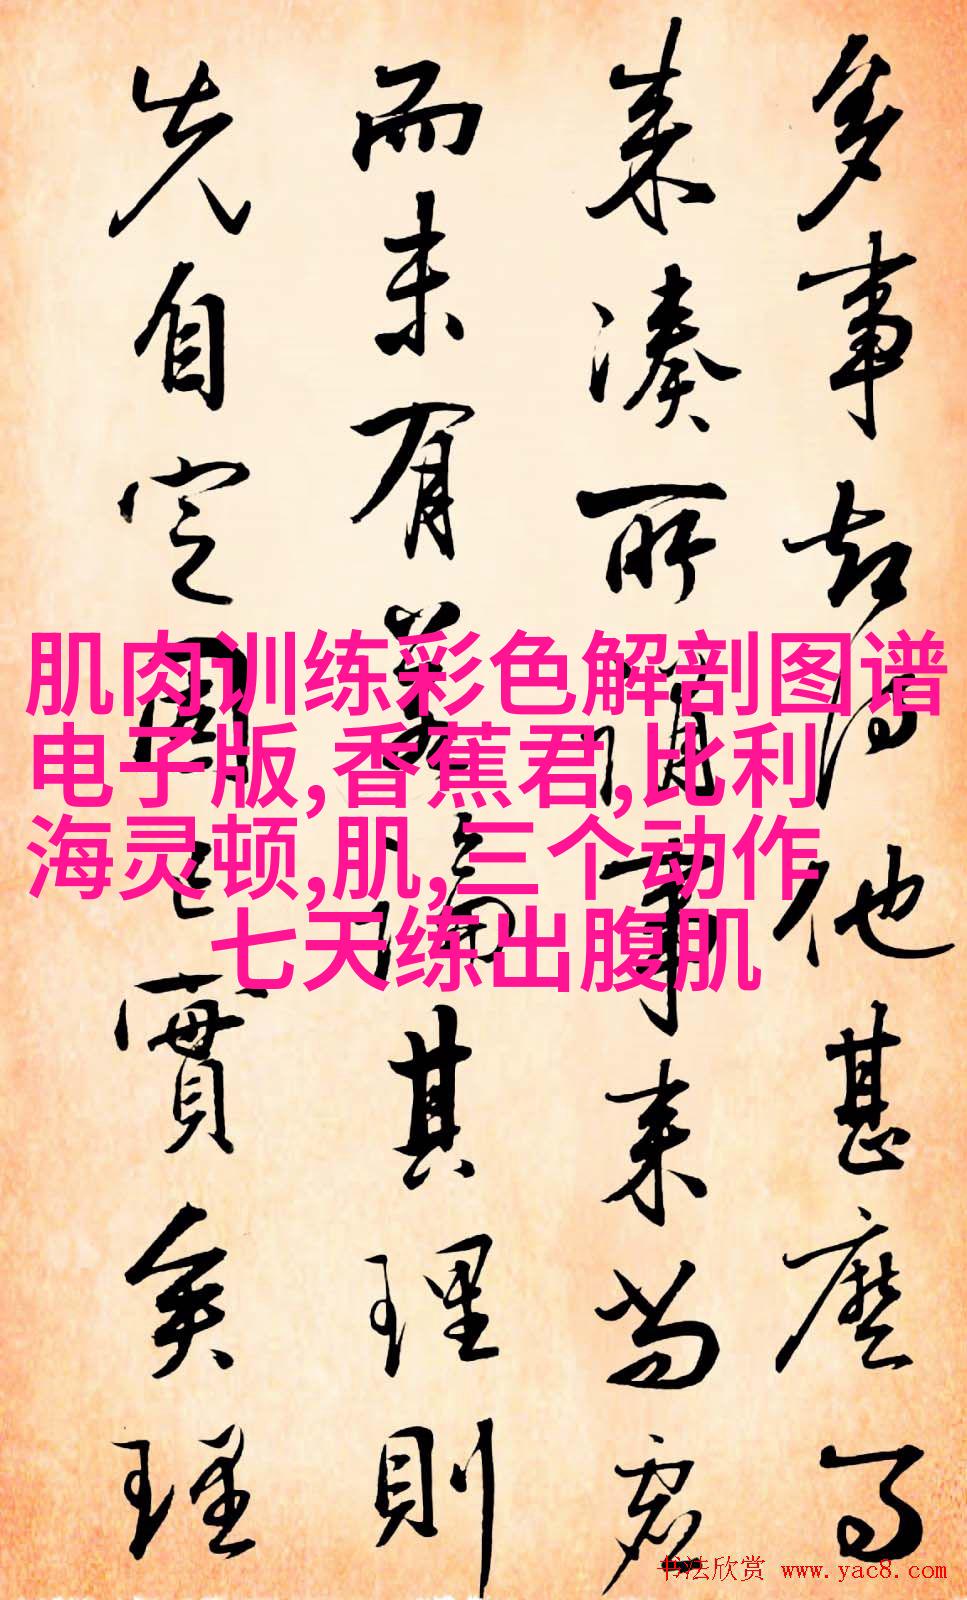 多事却须得他甚麼了
来凑所谓事来当处
而未有 其理則
先自定固已實矣理
肌肉训练彩色解剖图谱
电子版,香蕉君,比利
海灵顿,肌,三个动作
七天练出腹肌
书法欣赏 www.yac8.com